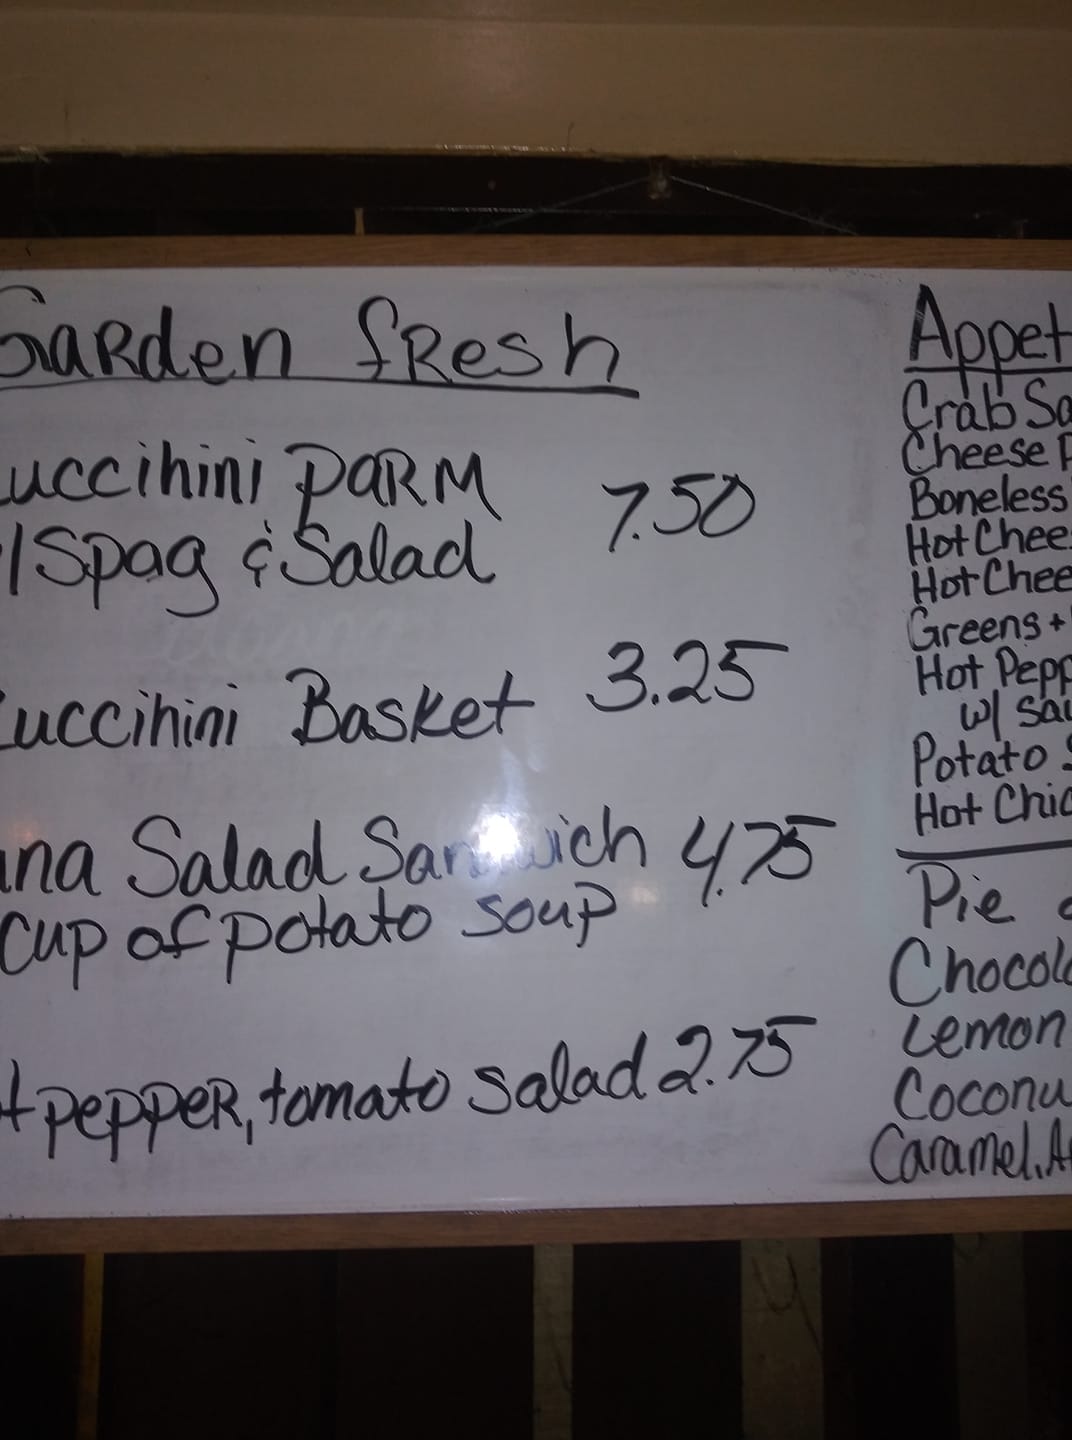 Garden fresh
uccihini PARM 7.50
/ Spag & Salad
Zuccihini Basket 3.25
una Salad Sandwich 4.75
Cup of potato soup
t pepper, tomato salad 2.75
Appet
Crab Sa
Cheese
Boneless
Hot Chee
Hot Chee
Greens +
Hot Pepp
w/ sau
Potato
Hot Chic
Pie
Chocol
Lemon
Coconu
Caramel. A